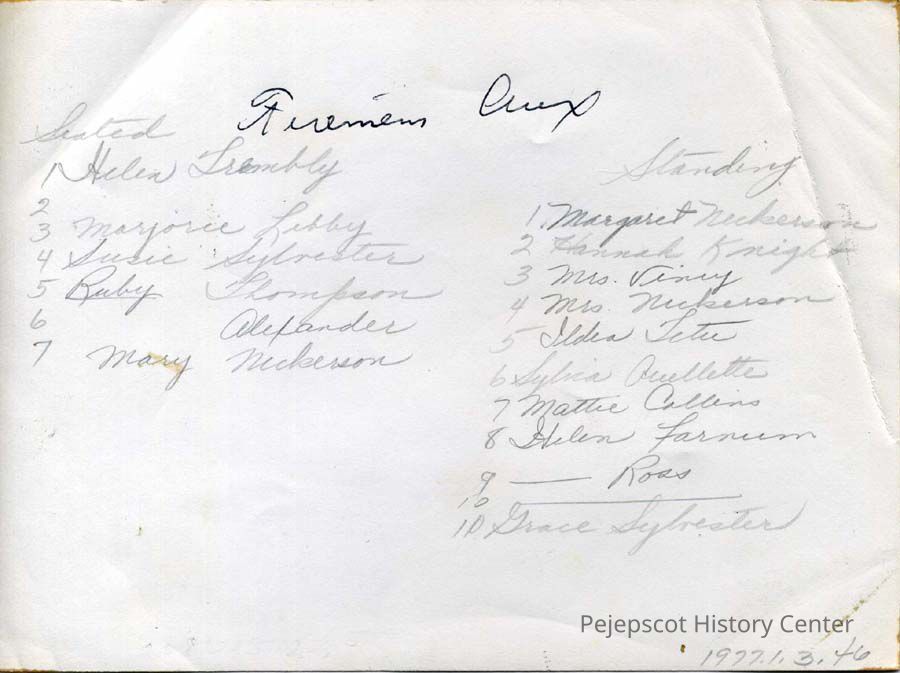 Firemens Aux
Seated
1 Helen Trembly
2
3 Marjorie Libby
4 Susie Sylvester
5 Ruby Thompson
6 Alexander
7 Mary Nickerson
Standing
1. Margaret Nickerson
2 Hannah Knight
3 Mrs. Viney
4 Mrs. Nickerson
5 Ildea Tetu
6 Sylvia Ouellette
7 Mattie Collins
8 Helen Farnum
9 — Ross
10
10 Grace Sylvester
Pejepscot History Center
1977.1.3.46